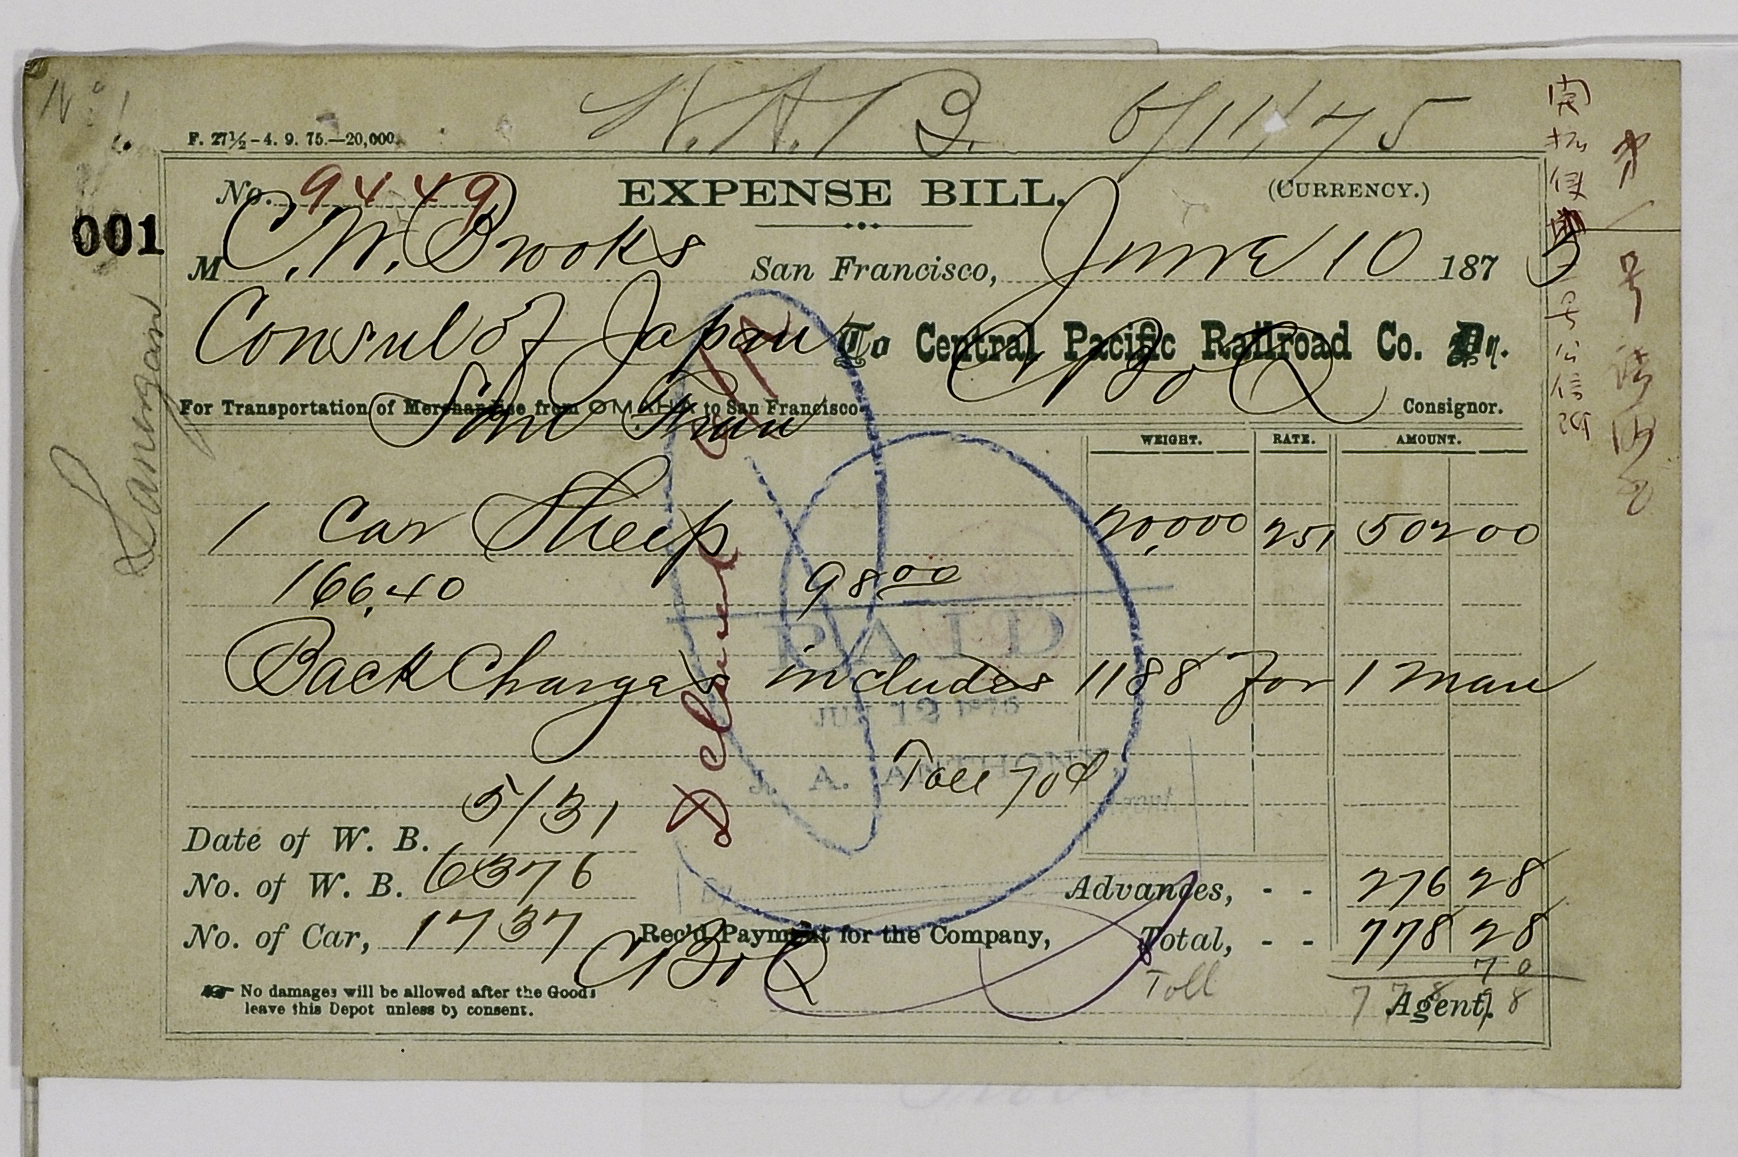 No. 1
W. A. B. 6/11/75
F. 27½-4. 9. 75.—20,000.
No. 9449 EXPENSE BILL. (CURRENCY.)
001
M C. W. Brooks San Francisco, June 10 1875
Consul of Japan To Central Pacific Railroad Co. Dr.
San Fran
For Transportation of Merchandise from OMAHA to San Francisco CB&Q Consignor.
Lanergan
WEIGHT. RATE. AMOUNT.
1 Car Sheep 20,000 251 502 00
166.40 98 00
Back Charges includes 1188 for 1 man
PAID
JUN 12 1875
A. ANTHONY
Toll 70¢
Date of W. B. 5/31
No. of W. B. 6376 Advances, - - 276 28
No. of Car, 1737 Rec'd Payment for the Company, Total, - - 778 28
CB&Q
Toll 70
No damages will be allowed after the Goods
leave this Depot unless by consent.
778 98
Agent.